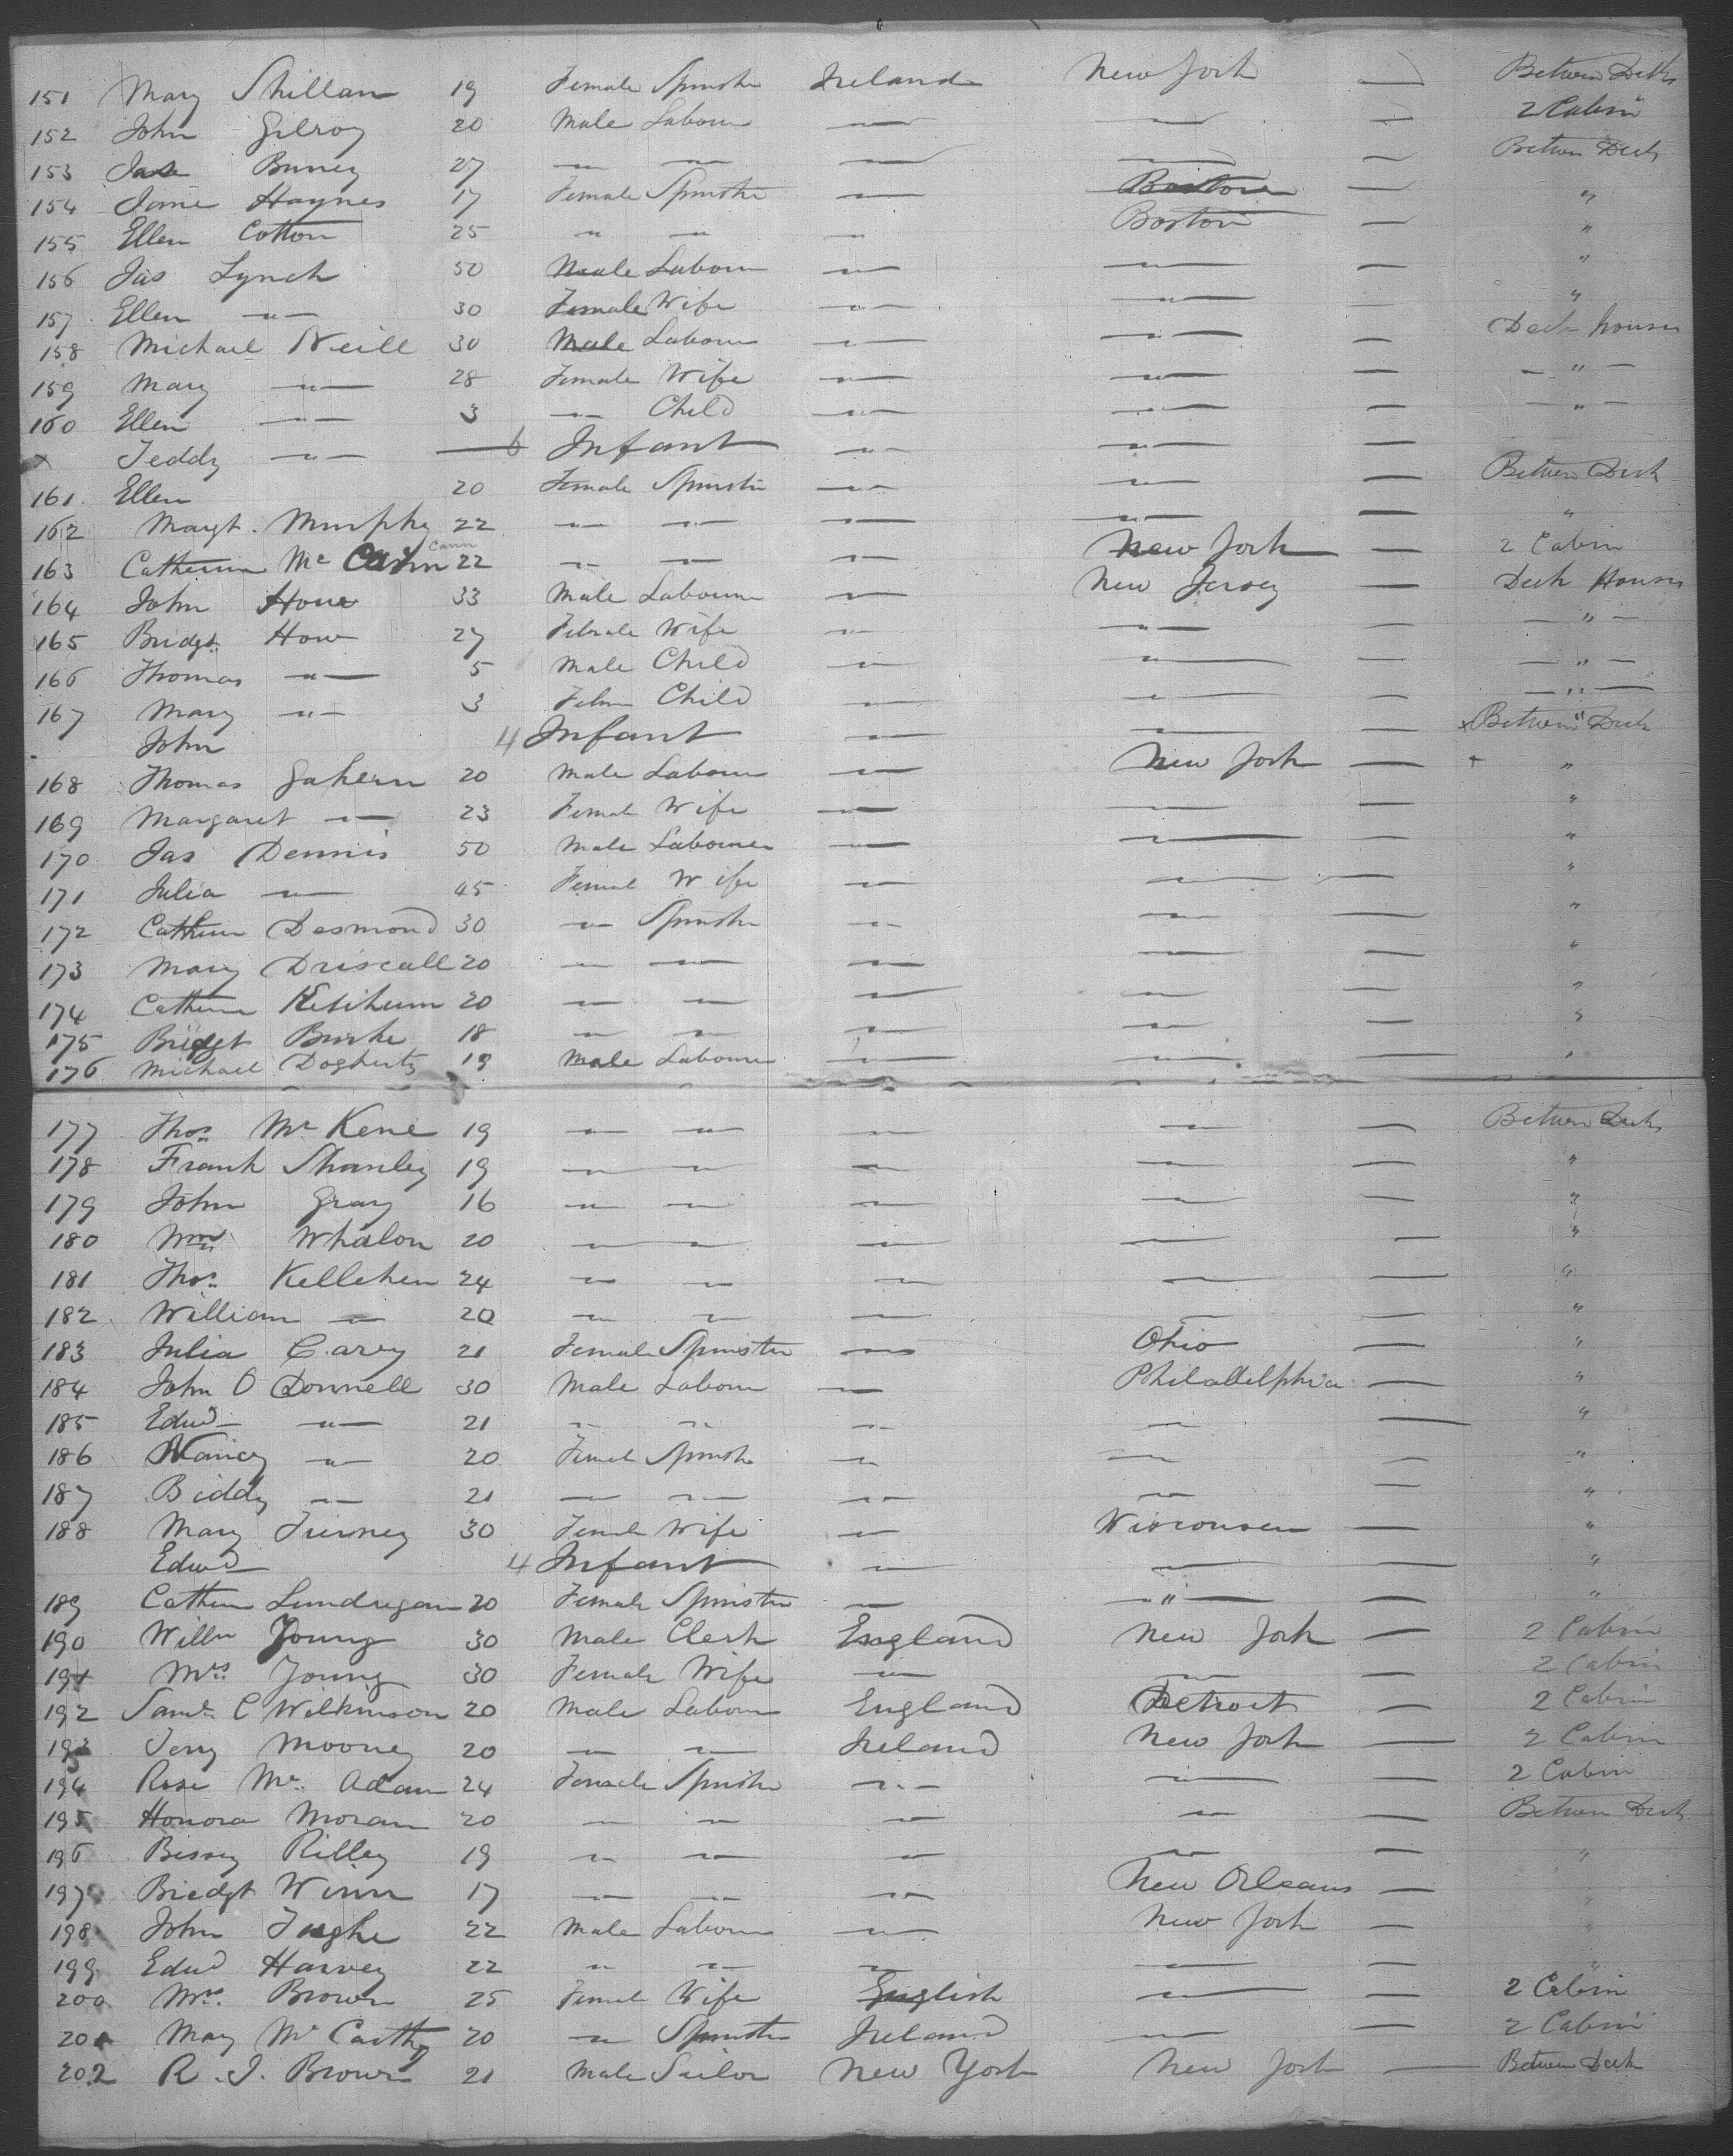 151 Mary Shillan 19 Female Spinster Ireland New York — Between Decks
152 John Gilroy 20 Male Labourer — — — 2 Cabin
153 Jas Burney 27 — — — — — Between Deck
154 Jane Haynes 17 Female Spinster — Boston — "
155 Ellen Cotton 25 " — — Boston — "
156 Jas Lynch 50 Male Labourer — — — "
157 Ellen —"— 30 Female Wife — — — "
158 Michael Neill 30 Male Labourer — — — Deck houses
159 Mary —"— 28 Female Wife — — — — " —
160 Ellen —"— 3 —"— Child — — — — " —
x Teddy —"— 6 Infant — — —
161 Ellen 20 Female Spinster — — — Between Deck
162 Margt. Murphy 22 — — — — — "
163 Catherine Mc Cann Cann 22 — — — New York — 2 Cabin
164 John Howe 33 Male Labourer — New Jersey — Deck Houses
165 Bridgt. How 27 Female Wife — — — — " —
166 Thomas —"— 5 Male Child — — — — " —
167 Mary —"— 3 Female Child — — — — " —
John 4 Infant — — — x Between Deck
168 Thomas Gahern 20 Male Labourer — New York — + "
169 Margaret —"— 23 Female Wife — — — "
170 Jas Dennis 50 Male Labourer — — — "
171 Julia —"— 45 Female Wife — — — "
172 Catherine Desmond 30 —"— Spinster — — — "
173 Mary Driscall 20 — — — — — "
174 Catherine 20 — — — — — "
175 Bridget Burke 18 — — — — — "
176 Michael Dogherty 19 Male Labourer — — — "
177 Thos. Mc Kene 19 — — — — — Between Decks
178 Frank Shanley 19 — — — — — "
179 John Gray 16 — — — — — "
180 Wm. Whalon 20 — — — — — "
181 Thos. Kellehen 24 — — — — — "
182 William —"— 20 — — — — — "
183 Julia Carey 21 Female Spinster — Ohio — "
184 John O Donnell 30 Male Labourer — Philadelphia — "
185 Edwd —"— 21 — — — — — "
186 Nancy —"— 20 Female Spinster — — — "
187 Biddy —"— 21 — — — — — "
188 Mary Tierney 30 Female Wife — Wisconsen — "
Edwd 4 Infant — — — "
189 Cathern Lundregan 20 Female Spinster — —"— — "
190 Willm Young 30 Male Clerk England New York — 2 Cabin
191 Mrs. Young 30 Female Wife — — — 2 Cabin
192 Saml. C Wilkinson 20 Male Labourer England Detroit — 2 Cabin
193 Terry Mooney 20 — — Ireland New York — 2 Cabin
194 Rose Mc. Adam 24 Female Spinster — — — 2 Cabin
195 Honora Moran 20 — — — — — Between Decks
196 Bissy Rilley 19 — — — — — "
197 Briedgt Winn 17 — — — New Orleans — "
198 John Tughe 22 Male Labourer — New York — "
199 Edwd Harvey 22 — — — — — "
200 Mrs. Brown 25 Female Wife English — — 2 Cabin
201 May Mc Carthy 20 —"— Spinster Ireland — — 2 Cabin
202 R. J. Brown 21 Male Sailor New York New York — Between Deck